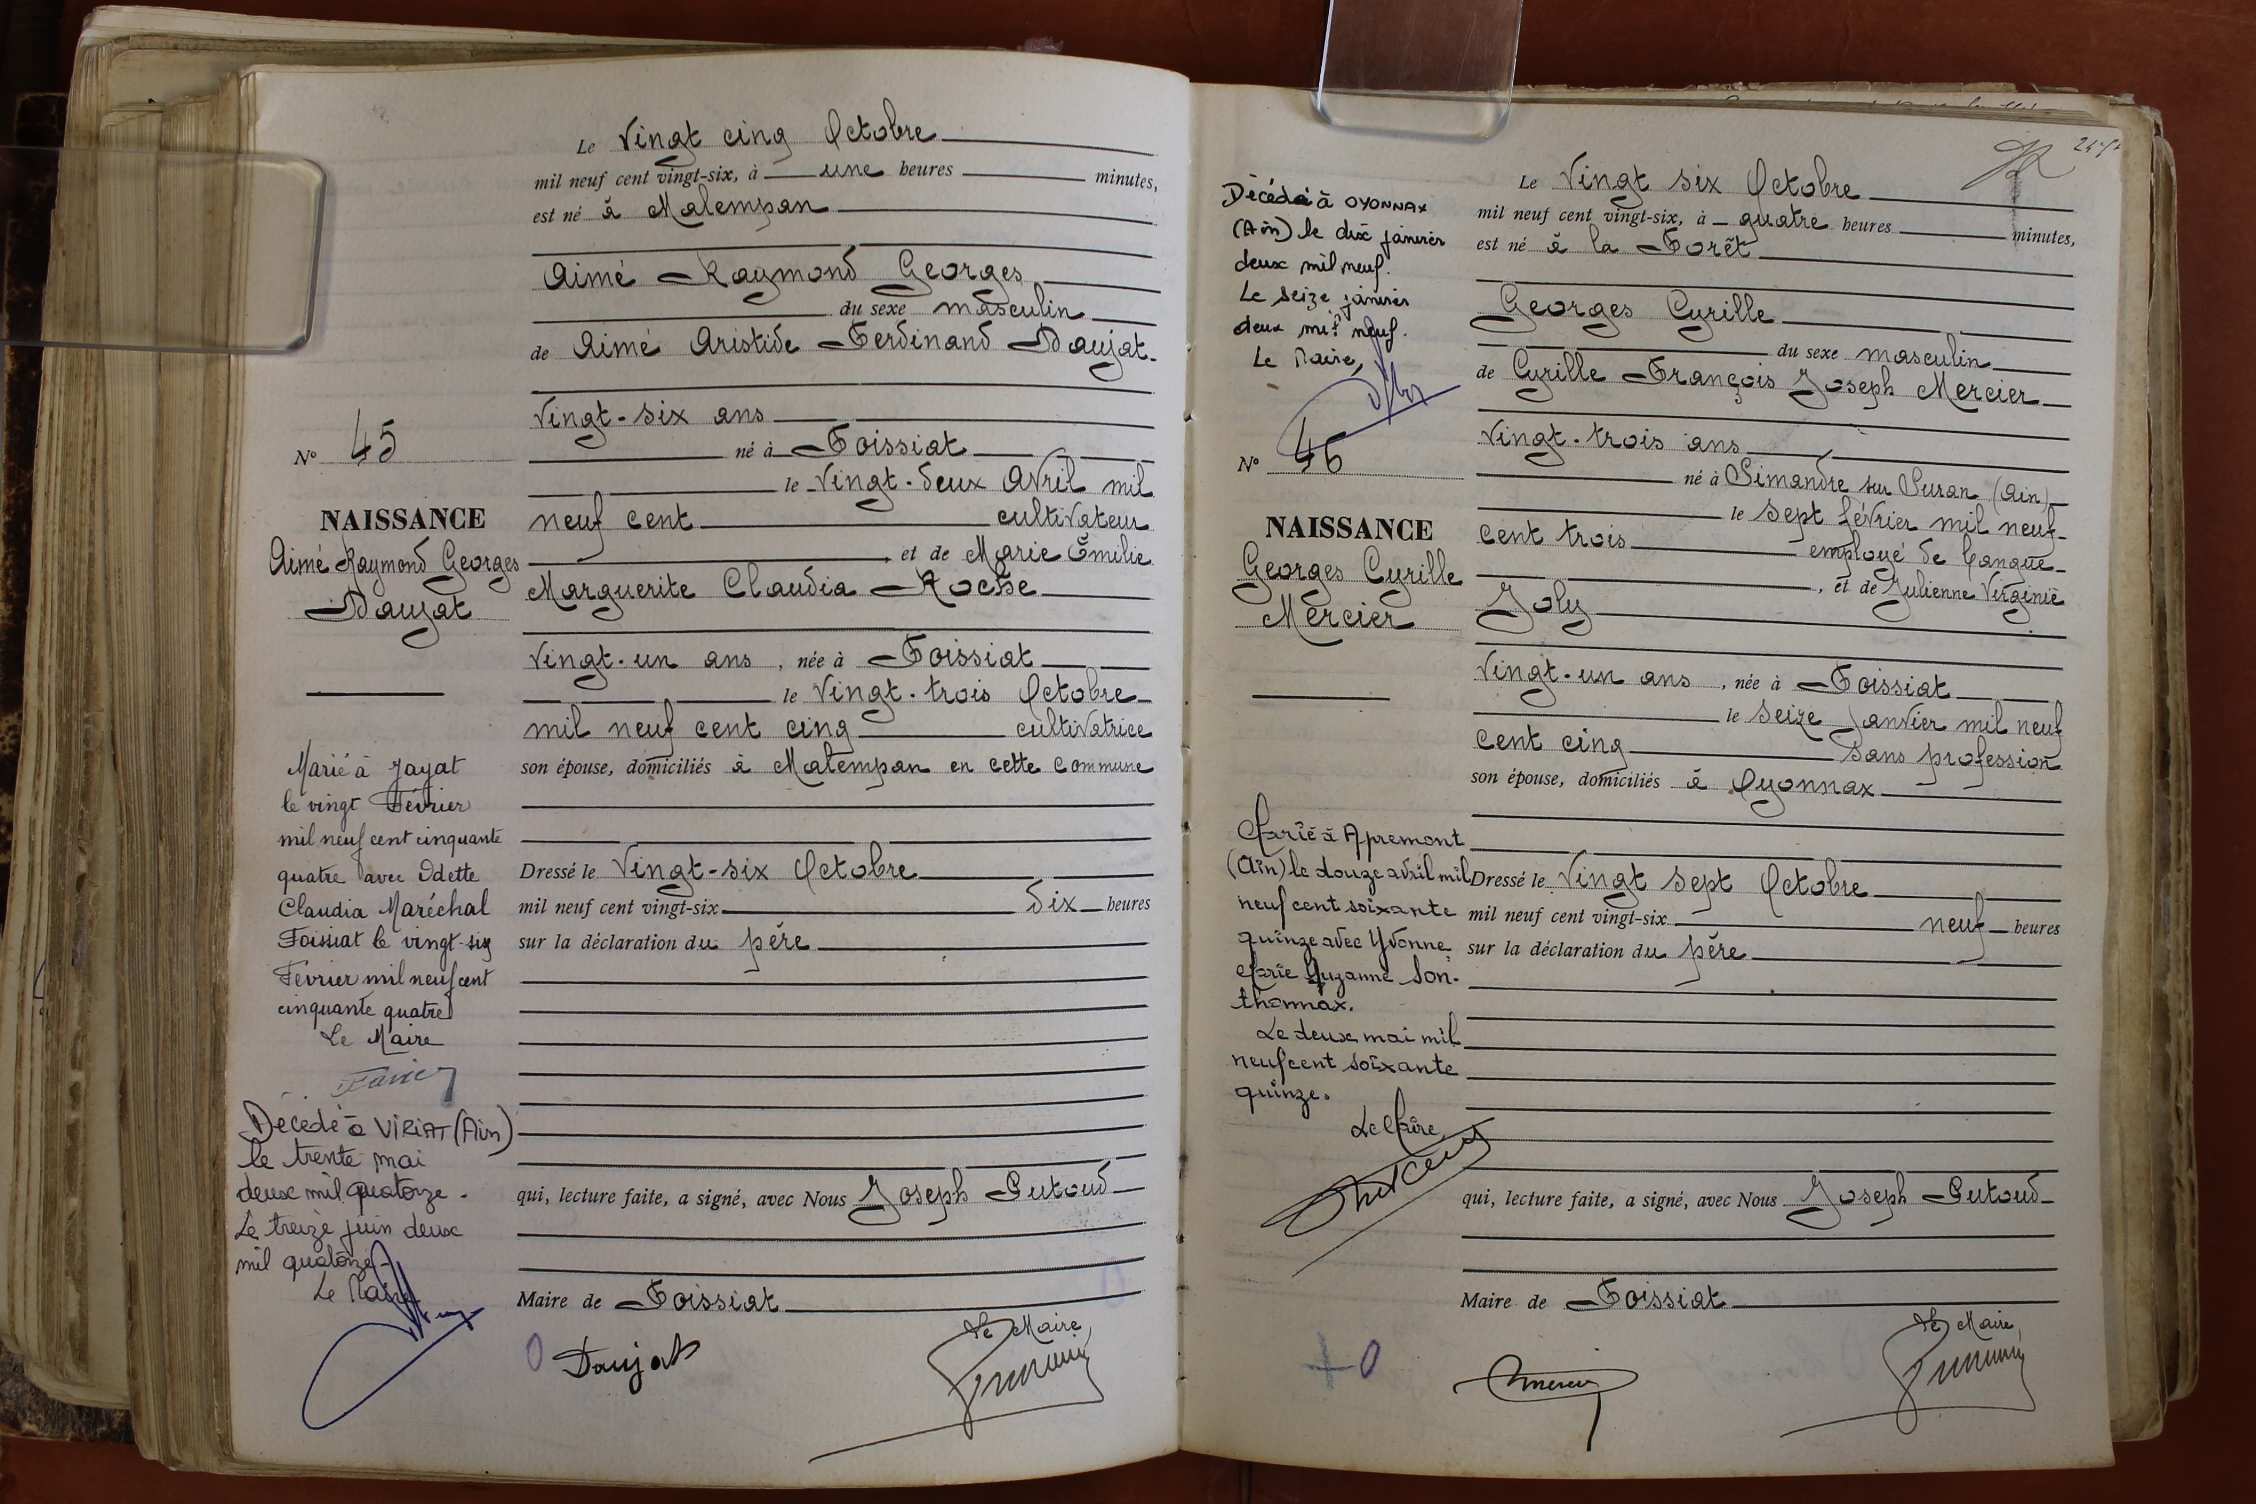 Le Vingt cinq Octobre
mil neuf cent vingt-six, à une heures minutes,
est né à Malempan
Aimé Raymond Georges
du sexe masculin
de Aimé Aristide Ferdinand Daujat
Vingt-six ans
né à Foissiat
le Vingt-deux Avril mil
neuf cent cultivateur
et de Marie Émilie
Marguerite Claudia Roche
Vingt-un ans, née à Foissiat
le Vingt-trois Octobre
mil neuf cent cinq cultivatrice
son épouse, domiciliés à Malempan en cette commune
Dressé le Vingt-six Octobre
mil neuf cent vingt-six dix heures
sur la déclaration du père
qui, lecture faite, a signé, avec Nous Joseph Putoud
Maire de Foissiat
Le Maire,
Daujat
N° 45
NAISSANCE
Aimé Raymond Georges
Daujat
Marié à Jayat
le vingt Février
mil neuf cent cinquante
quatre avec Odette
Claudia Maréchal
Foissiat le vingt-six
Février mil neuf cent
cinquante quatre
Le Maire
Décédé à VIRIAT (Ain)
le trente mai
deux mil quatorze.
Le treize juin deux
mil quatorze.
Le Maire
Le Vingt six Octobre
mil neuf cent vingt-six, à quatre heures minutes,
est né à la Forêt
Georges Cyrille
du sexe masculin
de Cyrille François Joseph Mercier
Vingt-trois ans
né à Simandre sur Suran (Ain)
le sept février mil neuf
cent trois employé de banque
, et de Julienne Virginie
Joly
Vingt-un ans, née à Foissiat
le seize Janvier mil neuf
cent cinq sans profession
son épouse, domiciliés à Oyonnax
Dressé le Vingt sept Octobre
mil neuf cent vingt-six neuf heures
sur la déclaration du père
qui, lecture faite, a signé, avec Nous Joseph Putoud
Maire de Foissiat
Le Maire,
Mercier
Décédé à OYONNAX
(Ain) le dix janvier
deux mil neuf.
Le seize janvier
deux mil neuf.
Le Maire,
N° 46
NAISSANCE
Georges Cyrille
Mercier
Marié à Apremont
(Ain) le douze avril mil
neuf cent soixante
quinze avec Yvonne
Marie Suzanne Son-
thonnax.
Le deux mai mil
neuf cent soixante
quinze.
Le Maire,